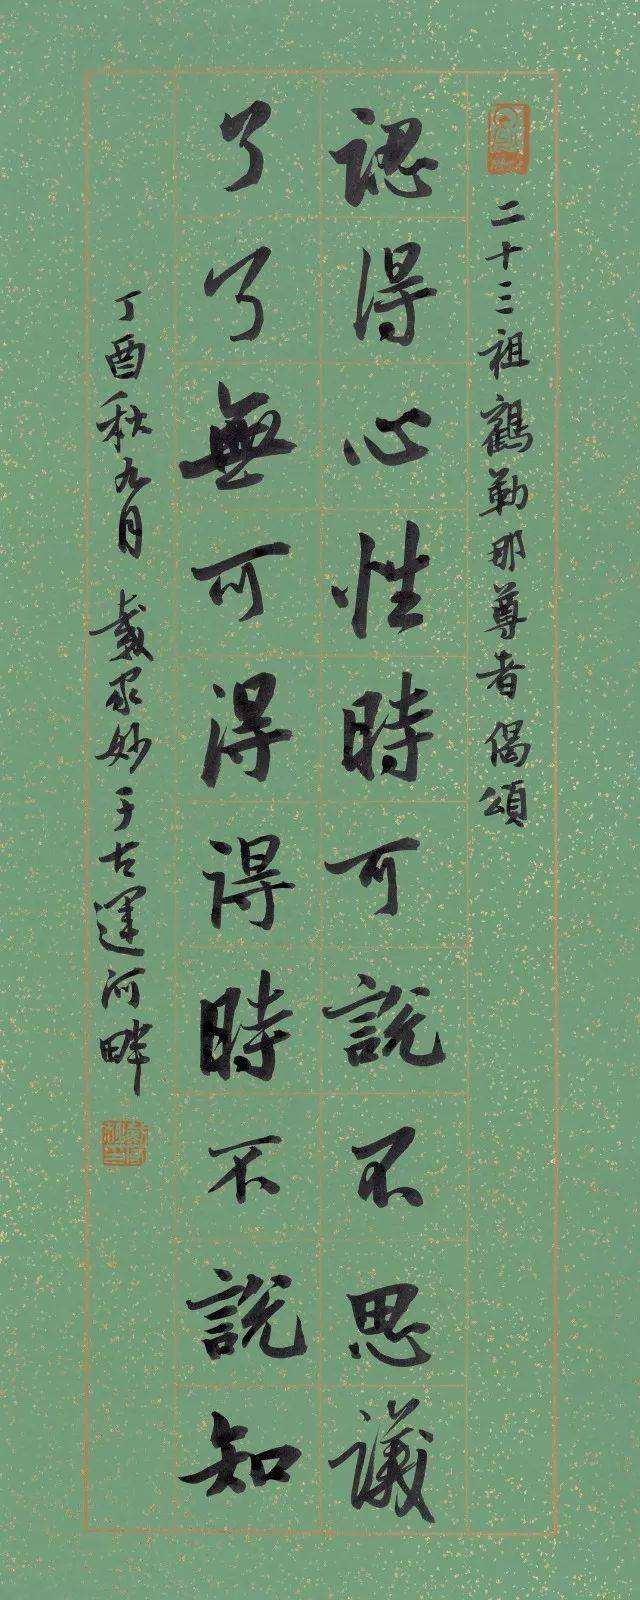 二十三祖鶴勒那尊者偈頌
認得心性時可說不思議
了了無可得得時不說知
丁酉秋九月 戴家妙于古運河畔